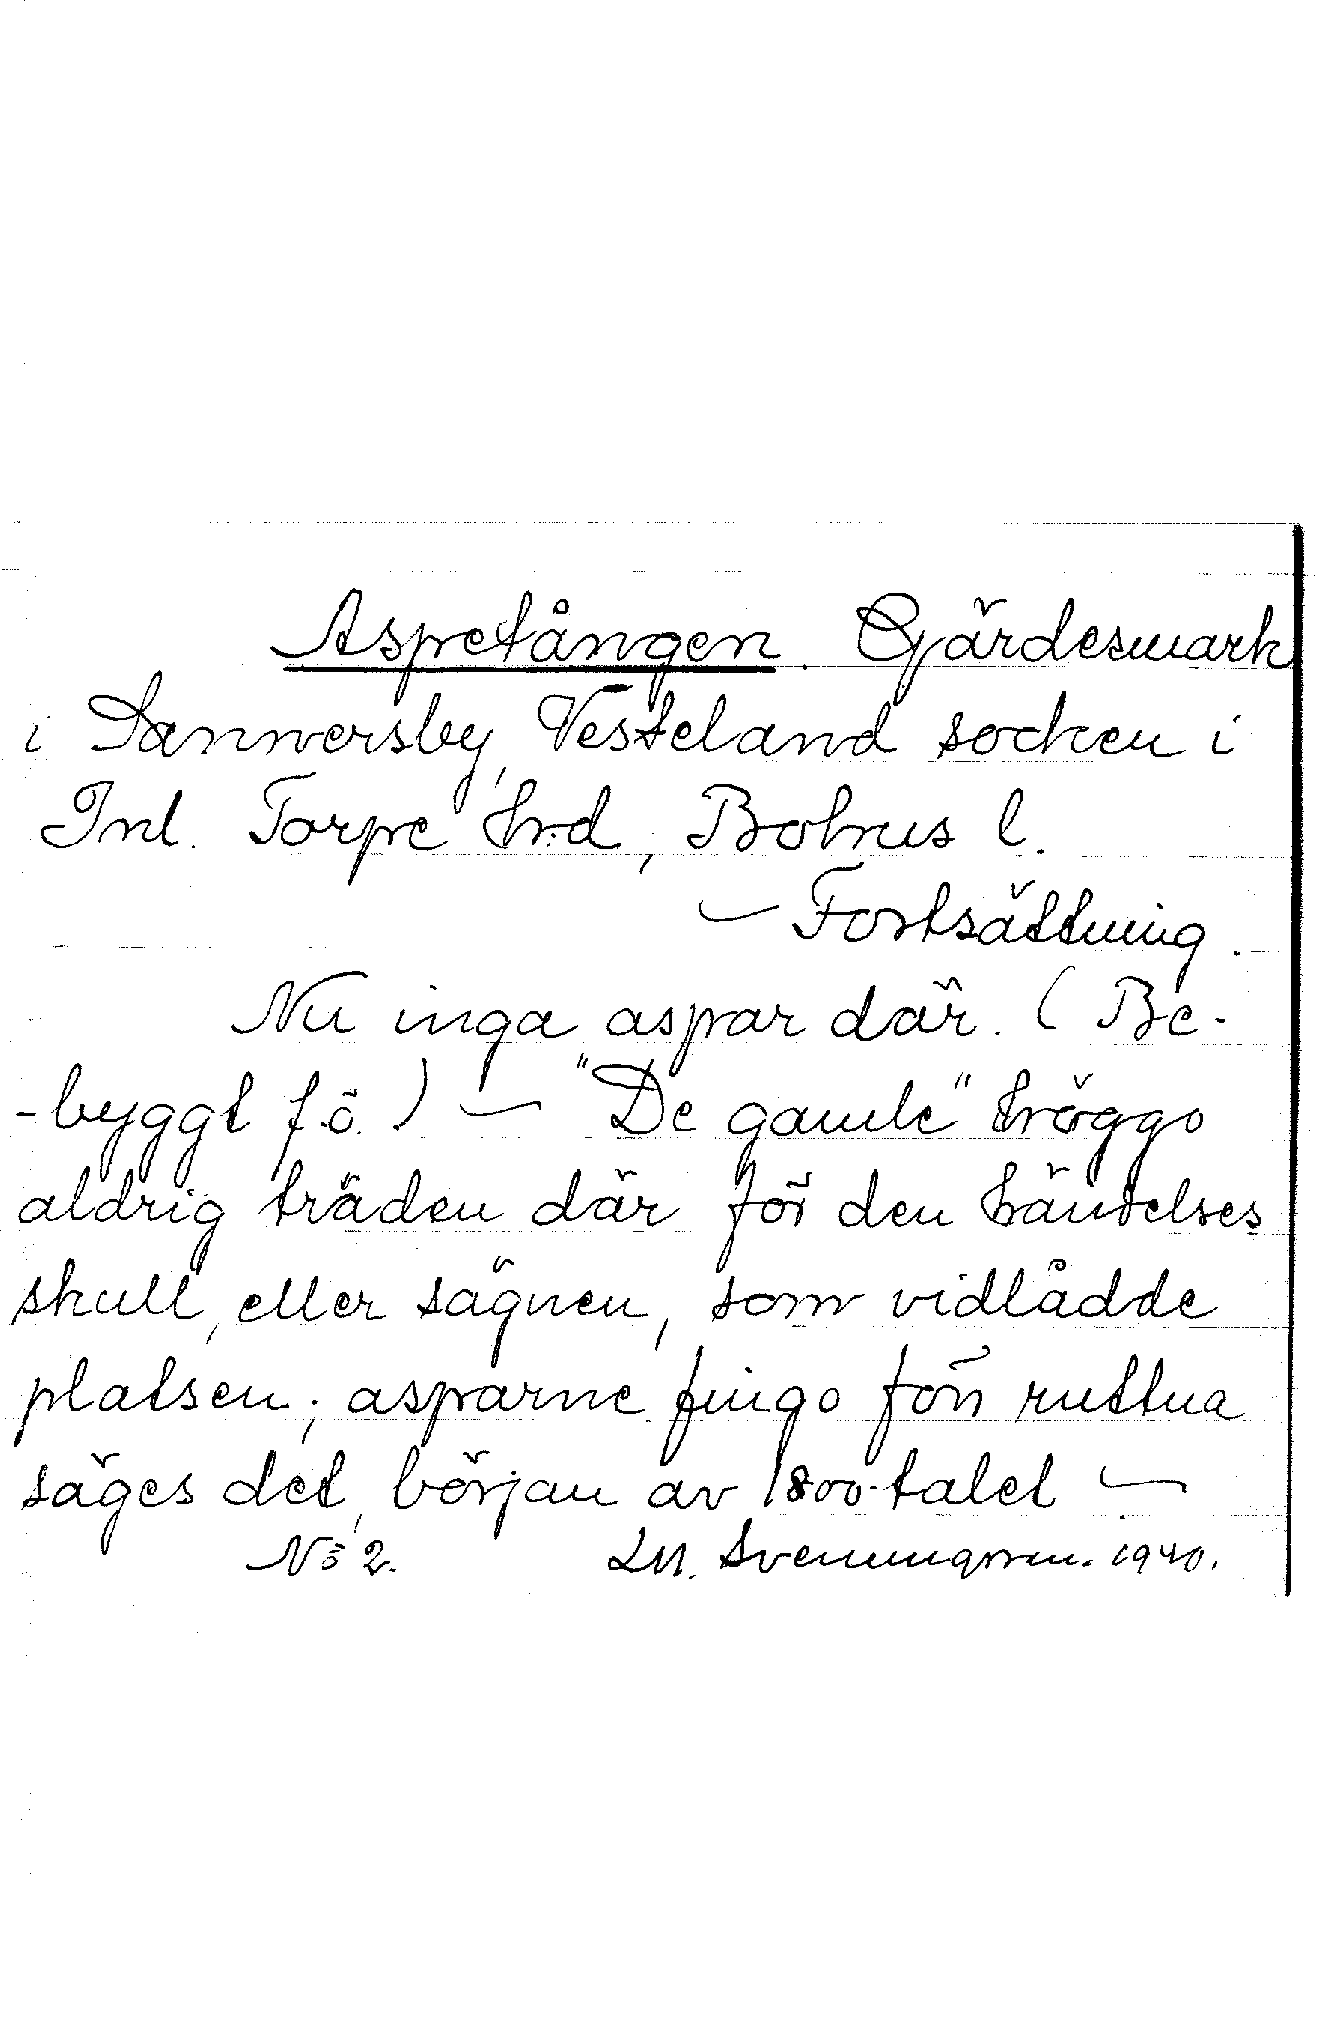 Aspetången. Gärdesmark
i Sannersby, Vesteland socken i
Inl. Torpe hrd, Bohus l.
— Fortsättning.
Nu inga aspar där. (Be-
-byggt f.ö.) — "De gamle" höggo
aldrig träden där för den händelses
skull, eller sägnen, som vidlådde
platsen; asparne fingo förr ruttna
säges det, början av 1800-talet —
No 2. Svenungsson. 1940.